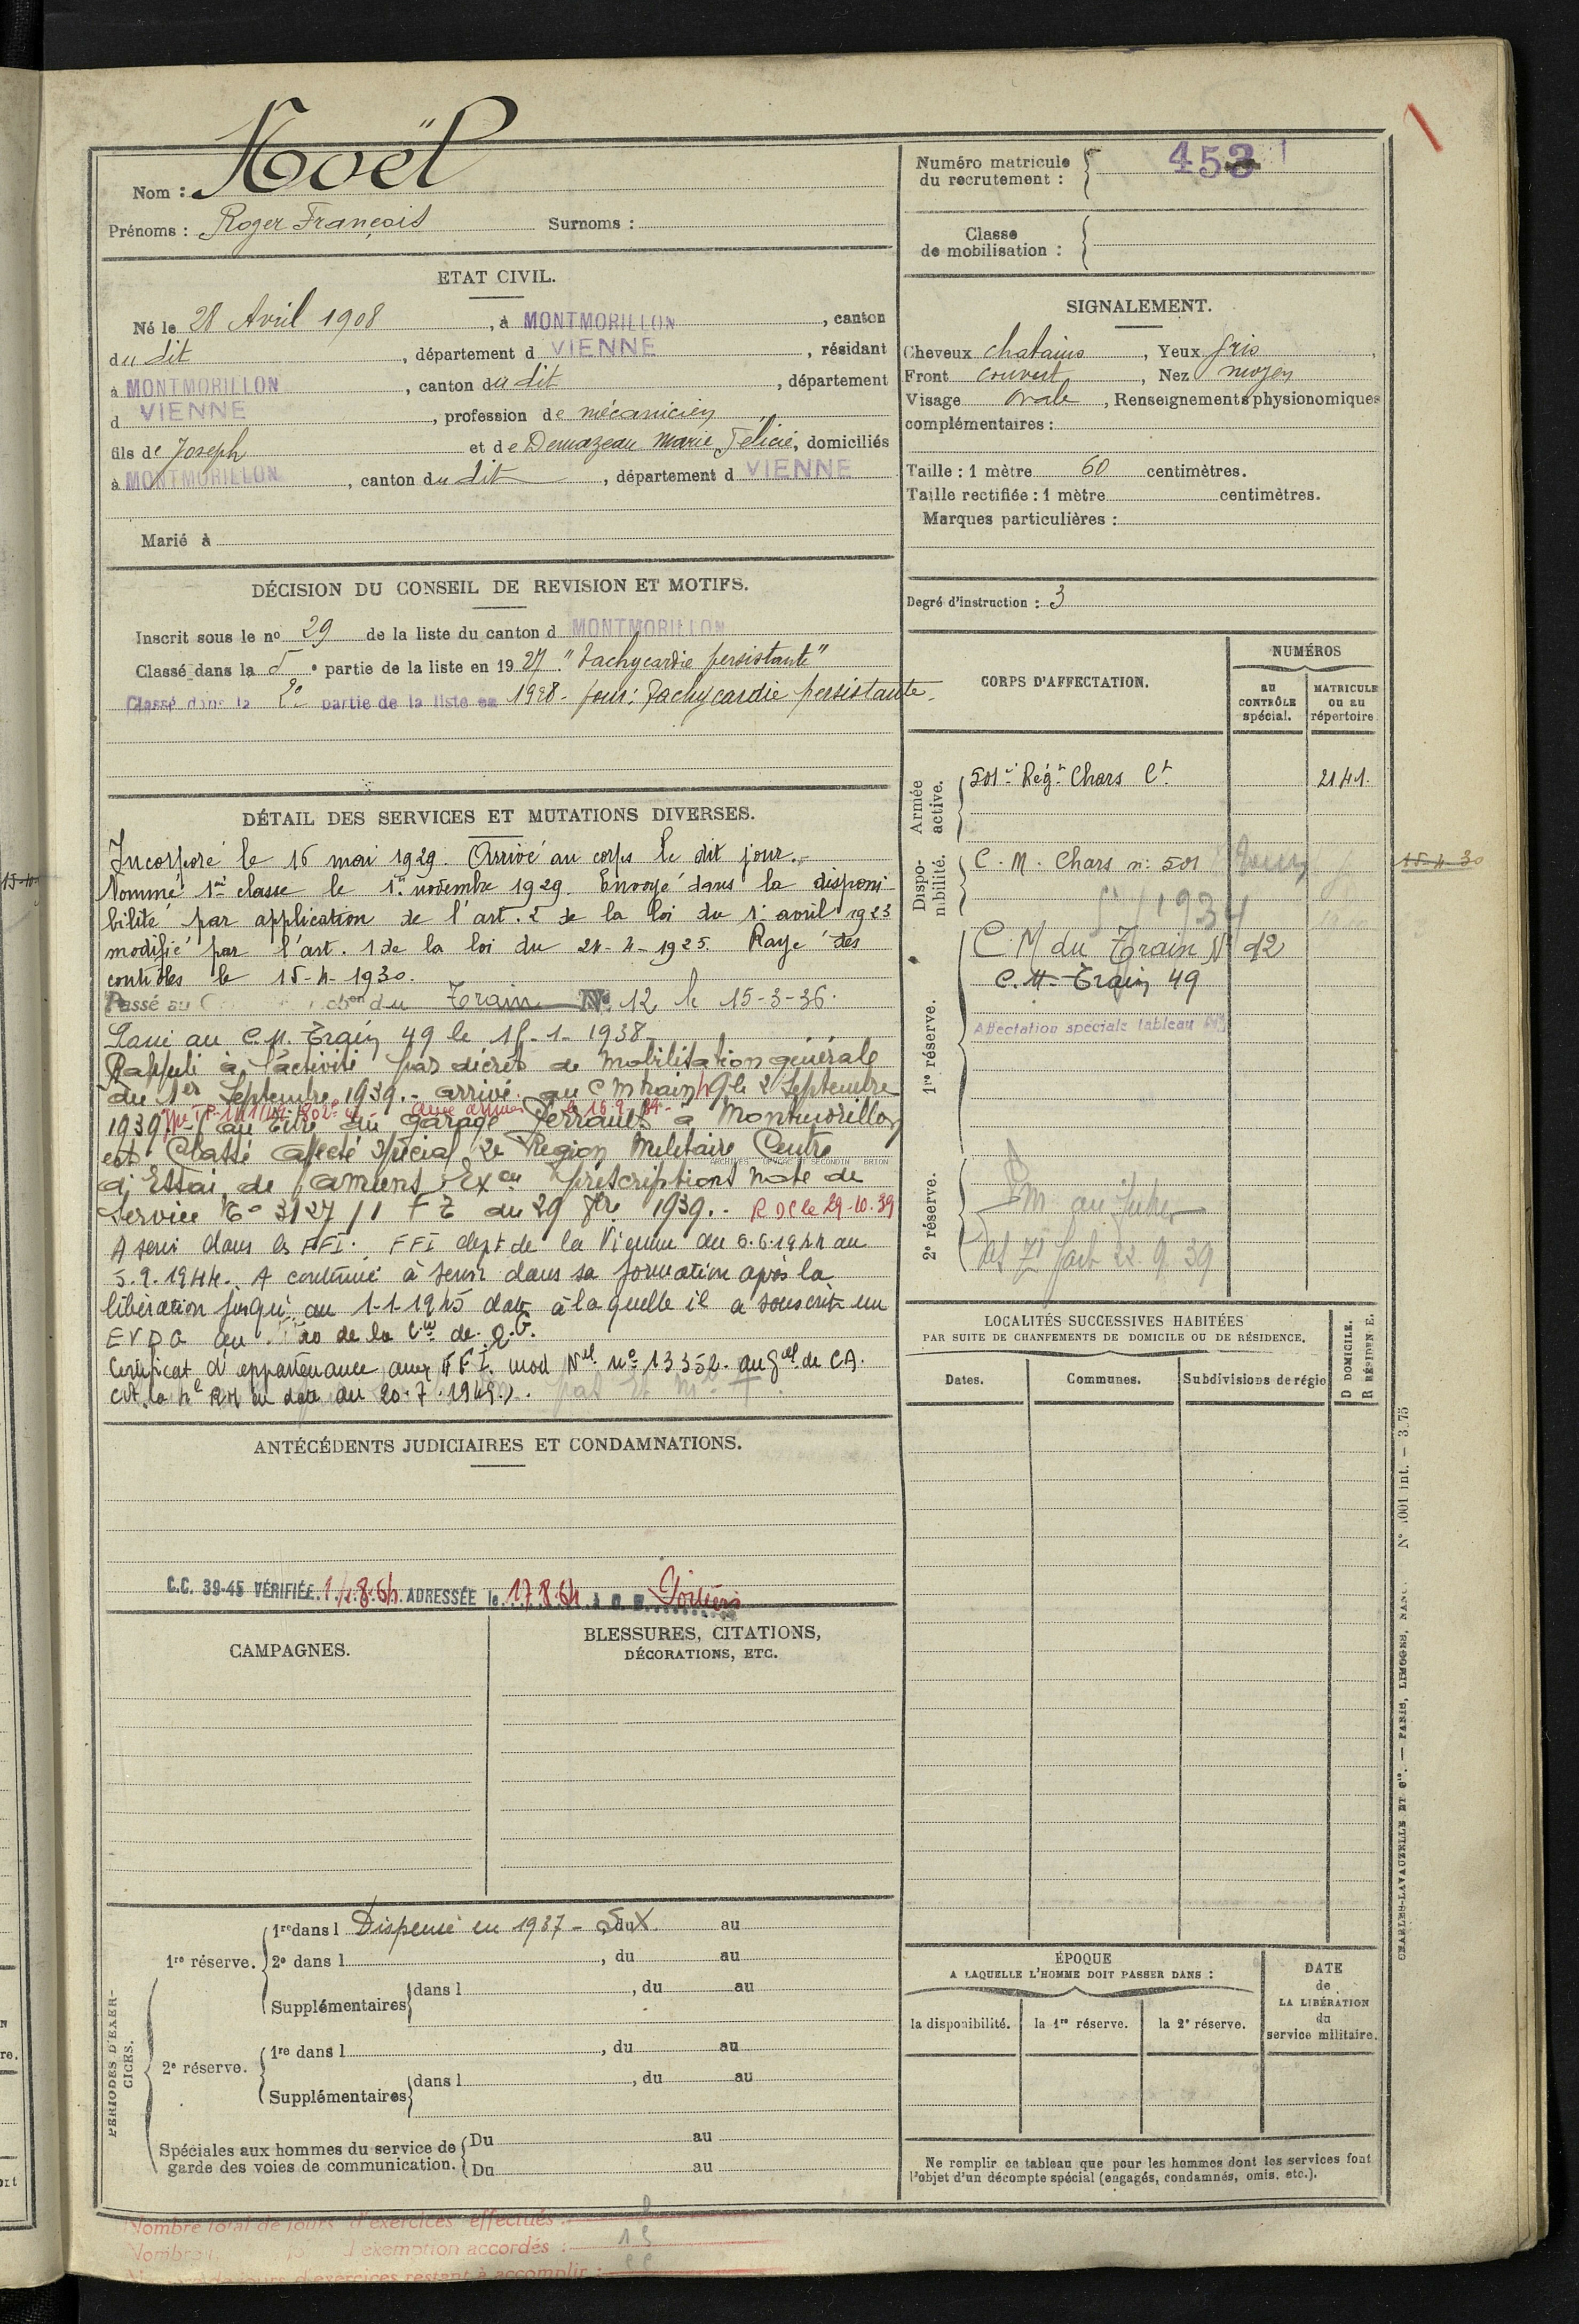 Nom : Noël
Prénoms : Roger François Surnoms :
ETAT CIVIL.
Né le 28 Avril 1908, à MONTMORILLON, canton
du dit, département d VIENNE, résidant
à MONTMORILLON, canton du dit, département
d VIENNE, profession de mécanicien
fils de Joseph et de Demazeau Marie Felicie, domiciliés
à MONTMORILLON, canton du dit, département d VIENNE
Marié à
DÉCISION DU CONSEIL DE REVISION ET MOTIFS.
Inscrit sous le no 29 de la liste du canton d MONTMORILLON
Classé dans la 5e partie de la liste en 1927. "tachycardie persistante"
Classé dans la 2e partie de la liste en 1928 - pour: Tachycardie persistante.
DÉTAIL DES SERVICES ET MUTATIONS DIVERSES.
Incorporé le 16 mai 1929. Arrivé au corps le dit jour.
Nommé 1re classe le 1er novembre 1929. Envoyé dans la disponi
bilité par application de l'art. 2 de la loi du 1er avril 1923
modifié par l'art. 1 de la loi du 24-4-1925. Rayé des
contrôles le 15-4-1930.
Passé au du Train No 12 le 15-3-36.
Passé au C.M. Train 49 le 15-1-1938
Rappelé à l'activité par décret de mobilisation générale
du 1er Septembre 1939.- arrivé au C m train 49 le 2 Septembre
1939 au titre du garage Perrault à Montmorillon
est Classé affecté Spécial 2e Région Militaire Centre
d'Essai de Camions Exon préscriptions note de
Service No 3127 /1 FZ du 29 7bre 1939.- R DC le 29-10-39
A servi dans les FFI. FFI dept de la Vienne du 6.6.1944 au
5.9.1944. A continué à servir dans sa formation après la
libération jusqu'au 1-1-1945 date à laquelle il a souscrit un
EVDG au de la Cie de Q.G.
Certificat d'appartenance aux FFI. mod Nel no 13352. du Gal de CA.
Cdt la 4e RM en date du 20.7.1949.
ANTÉCÉDENTS JUDICIAIRES ET CONDAMNATIONS.
C.C. 39-45 VÉRIFIÉE 14.8.64 ADRESSÉE le 17.8.64 à Poitiers
CAMPAGNES.
BLESSURES, CITATIONS,
DÉCORATIONS, ETC.
PÉRIODES D'EXERCICES.
1re réserve. 1re dans l Dispensé en 1937 - , du au
2e dans l , du au
Supplémentaires dans l , du au
2e réserve. 1re dans l , du au
Supplémentaires dans l , du au
Spéciales aux hommes du service de
garde des voies de communication. Du au
Du au
Nombre total de jours d'exercices effectués :
d'exemption accordés : 15
d'exercices restant à accomplir :
Numéro matricule
du recrutement : 453
Classe
de mobilisation :
SIGNALEMENT.
Cheveux chatains, Yeux gris
Front couvert, Nez moyen
Visage ovale, Renseignements physionomiques
complémentaires :
Taille : 1 mètre 60 centimètres.
Taille rectifiée : 1 mètre centimètres.
Marques particulières :
Degré d'instruction : 3
CORPS D'AFFECTATION.
NUMÉROS
au
CONTRÔLE
spécial.
MATRICULE
ou au
répertoire
Armée
active.
501e Régt Chars Ct 2141.
Dispo-
nibilité.
C. M. Chars no 501
1934
15-4-30
1re réserve.
C M du Train No 12
C.M- Train 49
Affectation spéciale tableau
2e réserve.
22.9.39
LOCALITÉS SUCCESSIVES HABITÉES
PAR SUITE DE CHANGEMENTS DE DOMICILE OU DE RÉSIDENCE.
Dates.
Communes.
Subdivisions de régio
D DOMICILE.
R RÉSIDENCE.
ÉPOQUE
A LAQUELLE L'HOMME DOIT PASSER DANS :
la disponibilité.
la 1re réserve.
la 2e réserve.
DATE
de
LA LIBÉRATION
du
service militaire.
Ne remplir ce tableau que pour les hommes dont les services font
l'objet d'un décompte spécial (engagés, condamnés, omis, etc.).
CHARLES-LAVAUZELLE ET Cie. — PARIS, LIMOGES, NANC. No 1001 int. - 3.75